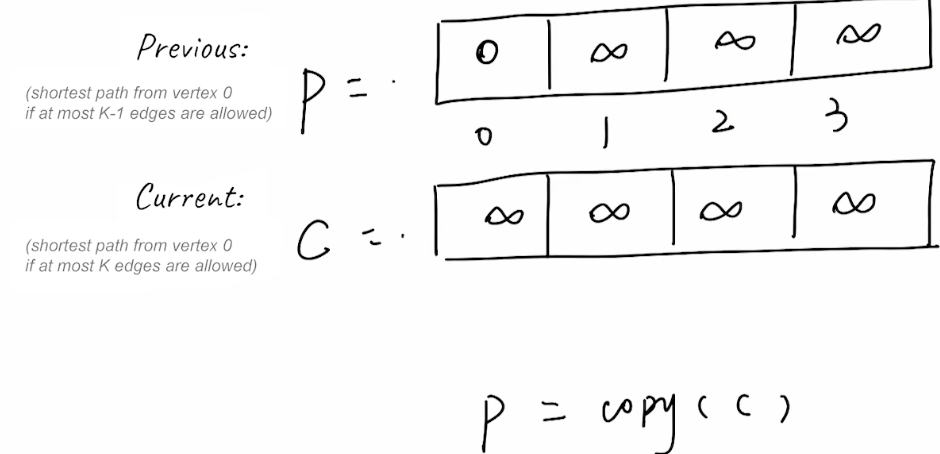 Previous:
(shortest path from vertex 0
if at most K-1 edges are allowed)
P = 0 ∞ ∞ ∞
0 1 2 3
Current:
(shortest path from vertex 0
if at most K edges are allowed)
C = ∞ ∞ ∞ ∞
P = copy ( C )